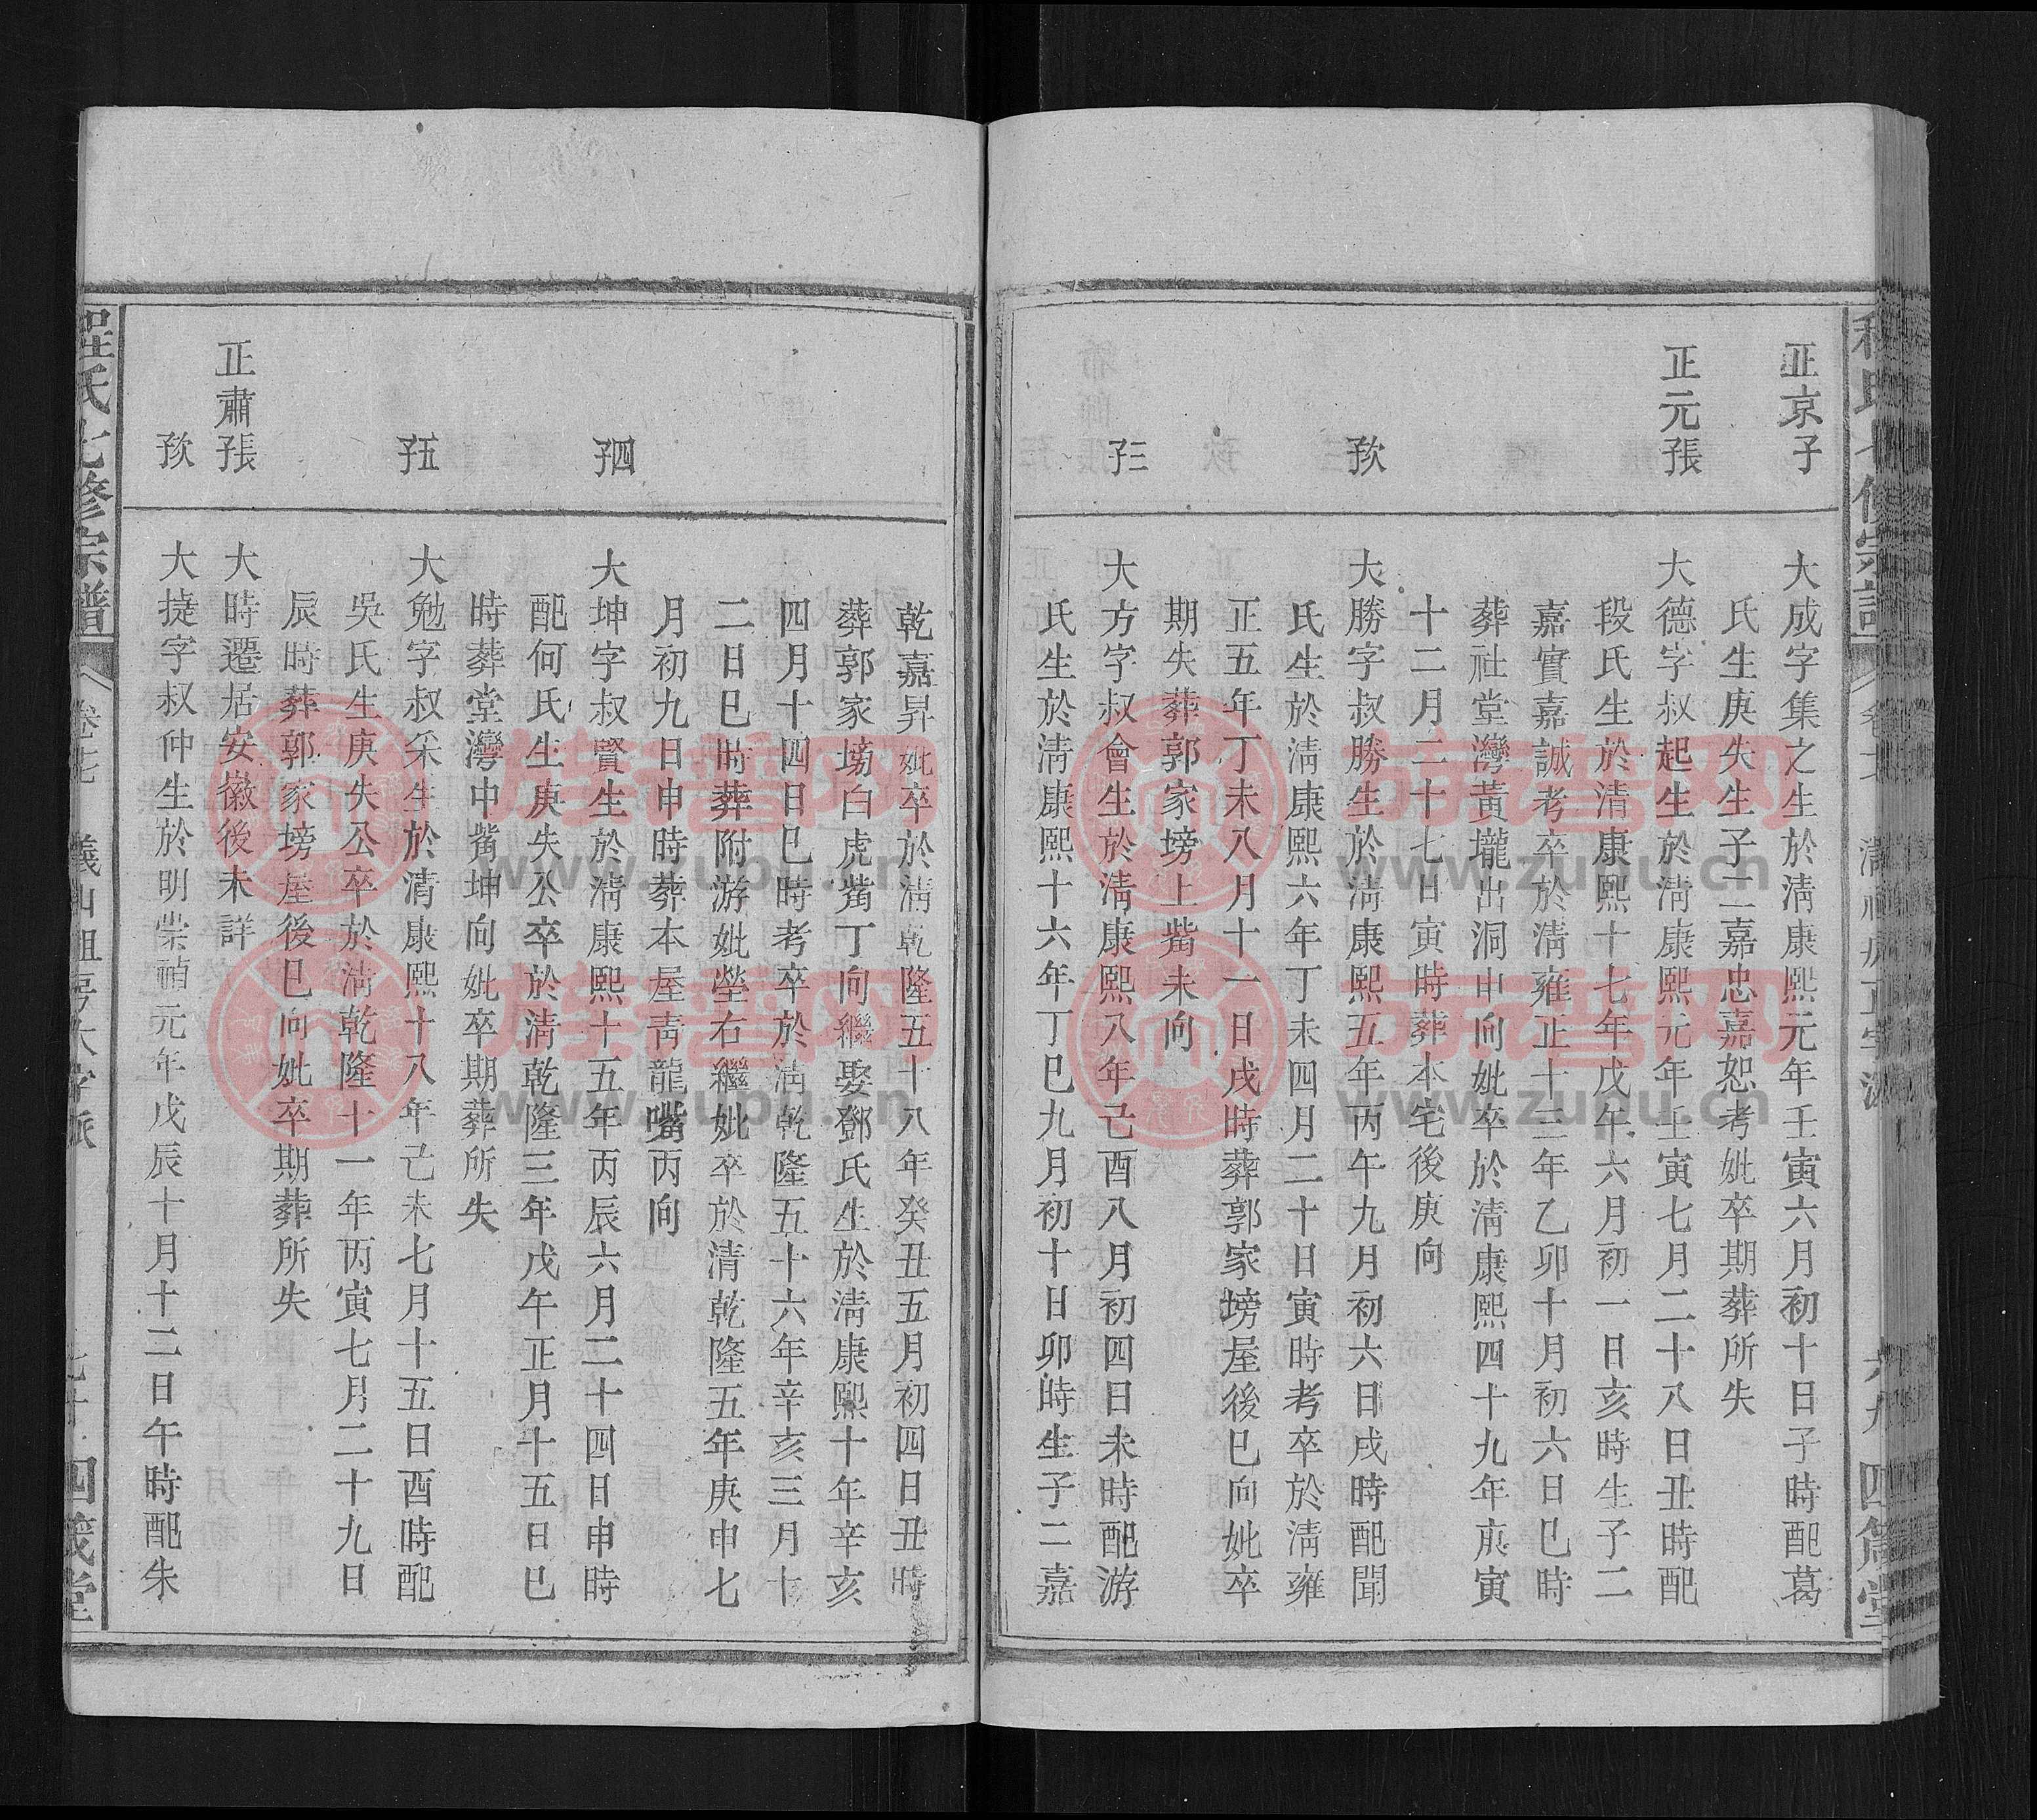 正京子
大成字集之生於淸康熙元年壬寅六月初十日子時配葛
氏生庚失生子二嘉忠嘉恕考妣卒期葬所失
正元長子
大德字叔起生於淸康熙元年壬寅七月二十八日丑時配
段氏生於清康熙十七年戊午六月初一日亥時生子二
嘉實嘉誠考卒於淸雍正十三年乙卯十月初六日巳時
葬社堂灣黃壠出洞申向妣卒於淸康熙四十九年庚寅
十二月二十七日寅時葬本宅後庚向
次子
大勝字叔勝生於淸康熙五年丙午九月初六日戌時配聞
氏生於淸康熙六年丁未四月二十日寅時考卒於淸雍
正五年丁未八月十一日戌時葬郭家塝屋後巳向妣卒
期失葬郭家塝上嘴未向
三子
大方字叔會生於淸康熙八年己酉八月初四日未時配游
氏生於淸康熙十六年丁巳九月初十日卯時生子二嘉
乾嘉昇妣卒於淸乾隆五十八年癸丑五月初四日丑時
葬郭家塝白虎嘴丁向繼娶鄧氏生於淸康熙十年辛亥
四月十四日巳時考卒於淸乾隆五十六年辛亥三月十
二日巳時葬附游妣塋右繼妣卒於清乾隆五年庚申七
月初九日申時葬本屋靑龍嘴丙向
四子
大坤字叔賢生於淸康熙十五年丙辰六月二十四日申時
配何氏生庚失公卒於淸乾隆三年戊午正月十五日巳
時葬堂灣中嘴坤向妣卒期葬所失
五子
大勉字叔采生於清康熙十八年己未七月十五日酉時配
吳氏生庚失公卒於淸乾隆十一年丙寅七月二十九日
辰時葬郭家塝屋後巳向妣卒期葬所失
正肅長子
大時遷居安徽後未詳
次子
大捷字叔仲生於明崇禎元年戊辰十月十二日午時配朱
程氏七修宗譜
卷七
義山祖房大字派
七十
四箴堂
族譜网
www.zupu.cn
族譜网
www.zupu.cn
族譜网
www.zupu.cn
族譜网
www.zupu.cn